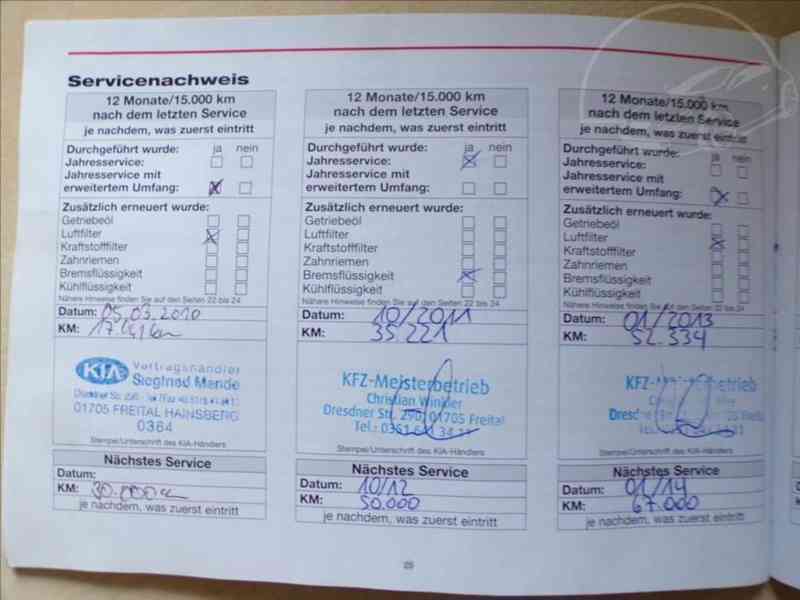 Servicenachweis
12 Monate/15.000 km
nach dem letzten Service
je nachdem, was zuerst eintritt
Durchgeführt wurde: ja nein
Jahresservice:
Jahresservice mit
erweitertem Umfang:
Zusätzlich erneuert wurde:
Getriebeöl
Luftfilter
Kraftstofffilter
Zahnriemen
Bremsflüssigkeit
Kühlflüssigkeit
Nähere Hinweise finden Sie auf den Seiten 22 bis 24
Datum: 05.03.2010
KM:
KIA Vertragshändler
Siegfried Mende
01705 FREITAL HAINSBERG
0364
Stempel/Unterschrift des KIA-Händlers
Nächstes Service
Datum:
KM: 30.000km
je nachdem, was zuerst eintritt
12 Monate/15.000 km
nach dem letzten Service
je nachdem, was zuerst eintritt
Durchgeführt wurde: ja nein
Jahresservice:
Jahresservice mit
erweitertem Umfang:
Zusätzlich erneuert wurde:
Getriebeöl
Luftfilter
Kraftstofffilter
Zahnriemen
Bremsflüssigkeit
Kühlflüssigkeit
Nähere Hinweise finden Sie auf den Seiten 22 bis 24
Datum: 10/2011
KM: 35.221
KFZ-Meisterbetrieb
Christian Winkler
Dresdner Str. 290, 01705 Freital
Tel.: 0351-
Stempel/Unterschrift des KIA-Händlers
Nächstes Service
Datum: 10/12
KM: 50.000
je nachdem, was zuerst eintritt
12 Monate/15.000 km
nach dem letzten Service
je nachdem, was zuerst eintritt
Durchgeführt wurde: ja nein
Jahresservice:
Jahresservice mit
erweitertem Umfang:
Zusätzlich erneuert wurde:
Getriebeöl
Luftfilter
Kraftstofffilter
Zahnriemen
Bremsflüssigkeit
Kühlflüssigkeit
Nähere Hinweise finden Sie auf den Seiten 22 bis 24
Datum: 01/2013
KM: 52.334
Stempel/Unterschrift des KIA-Händlers
Nächstes Service
Datum: 01/14
KM: 67.000
je nachdem, was zuerst eintritt